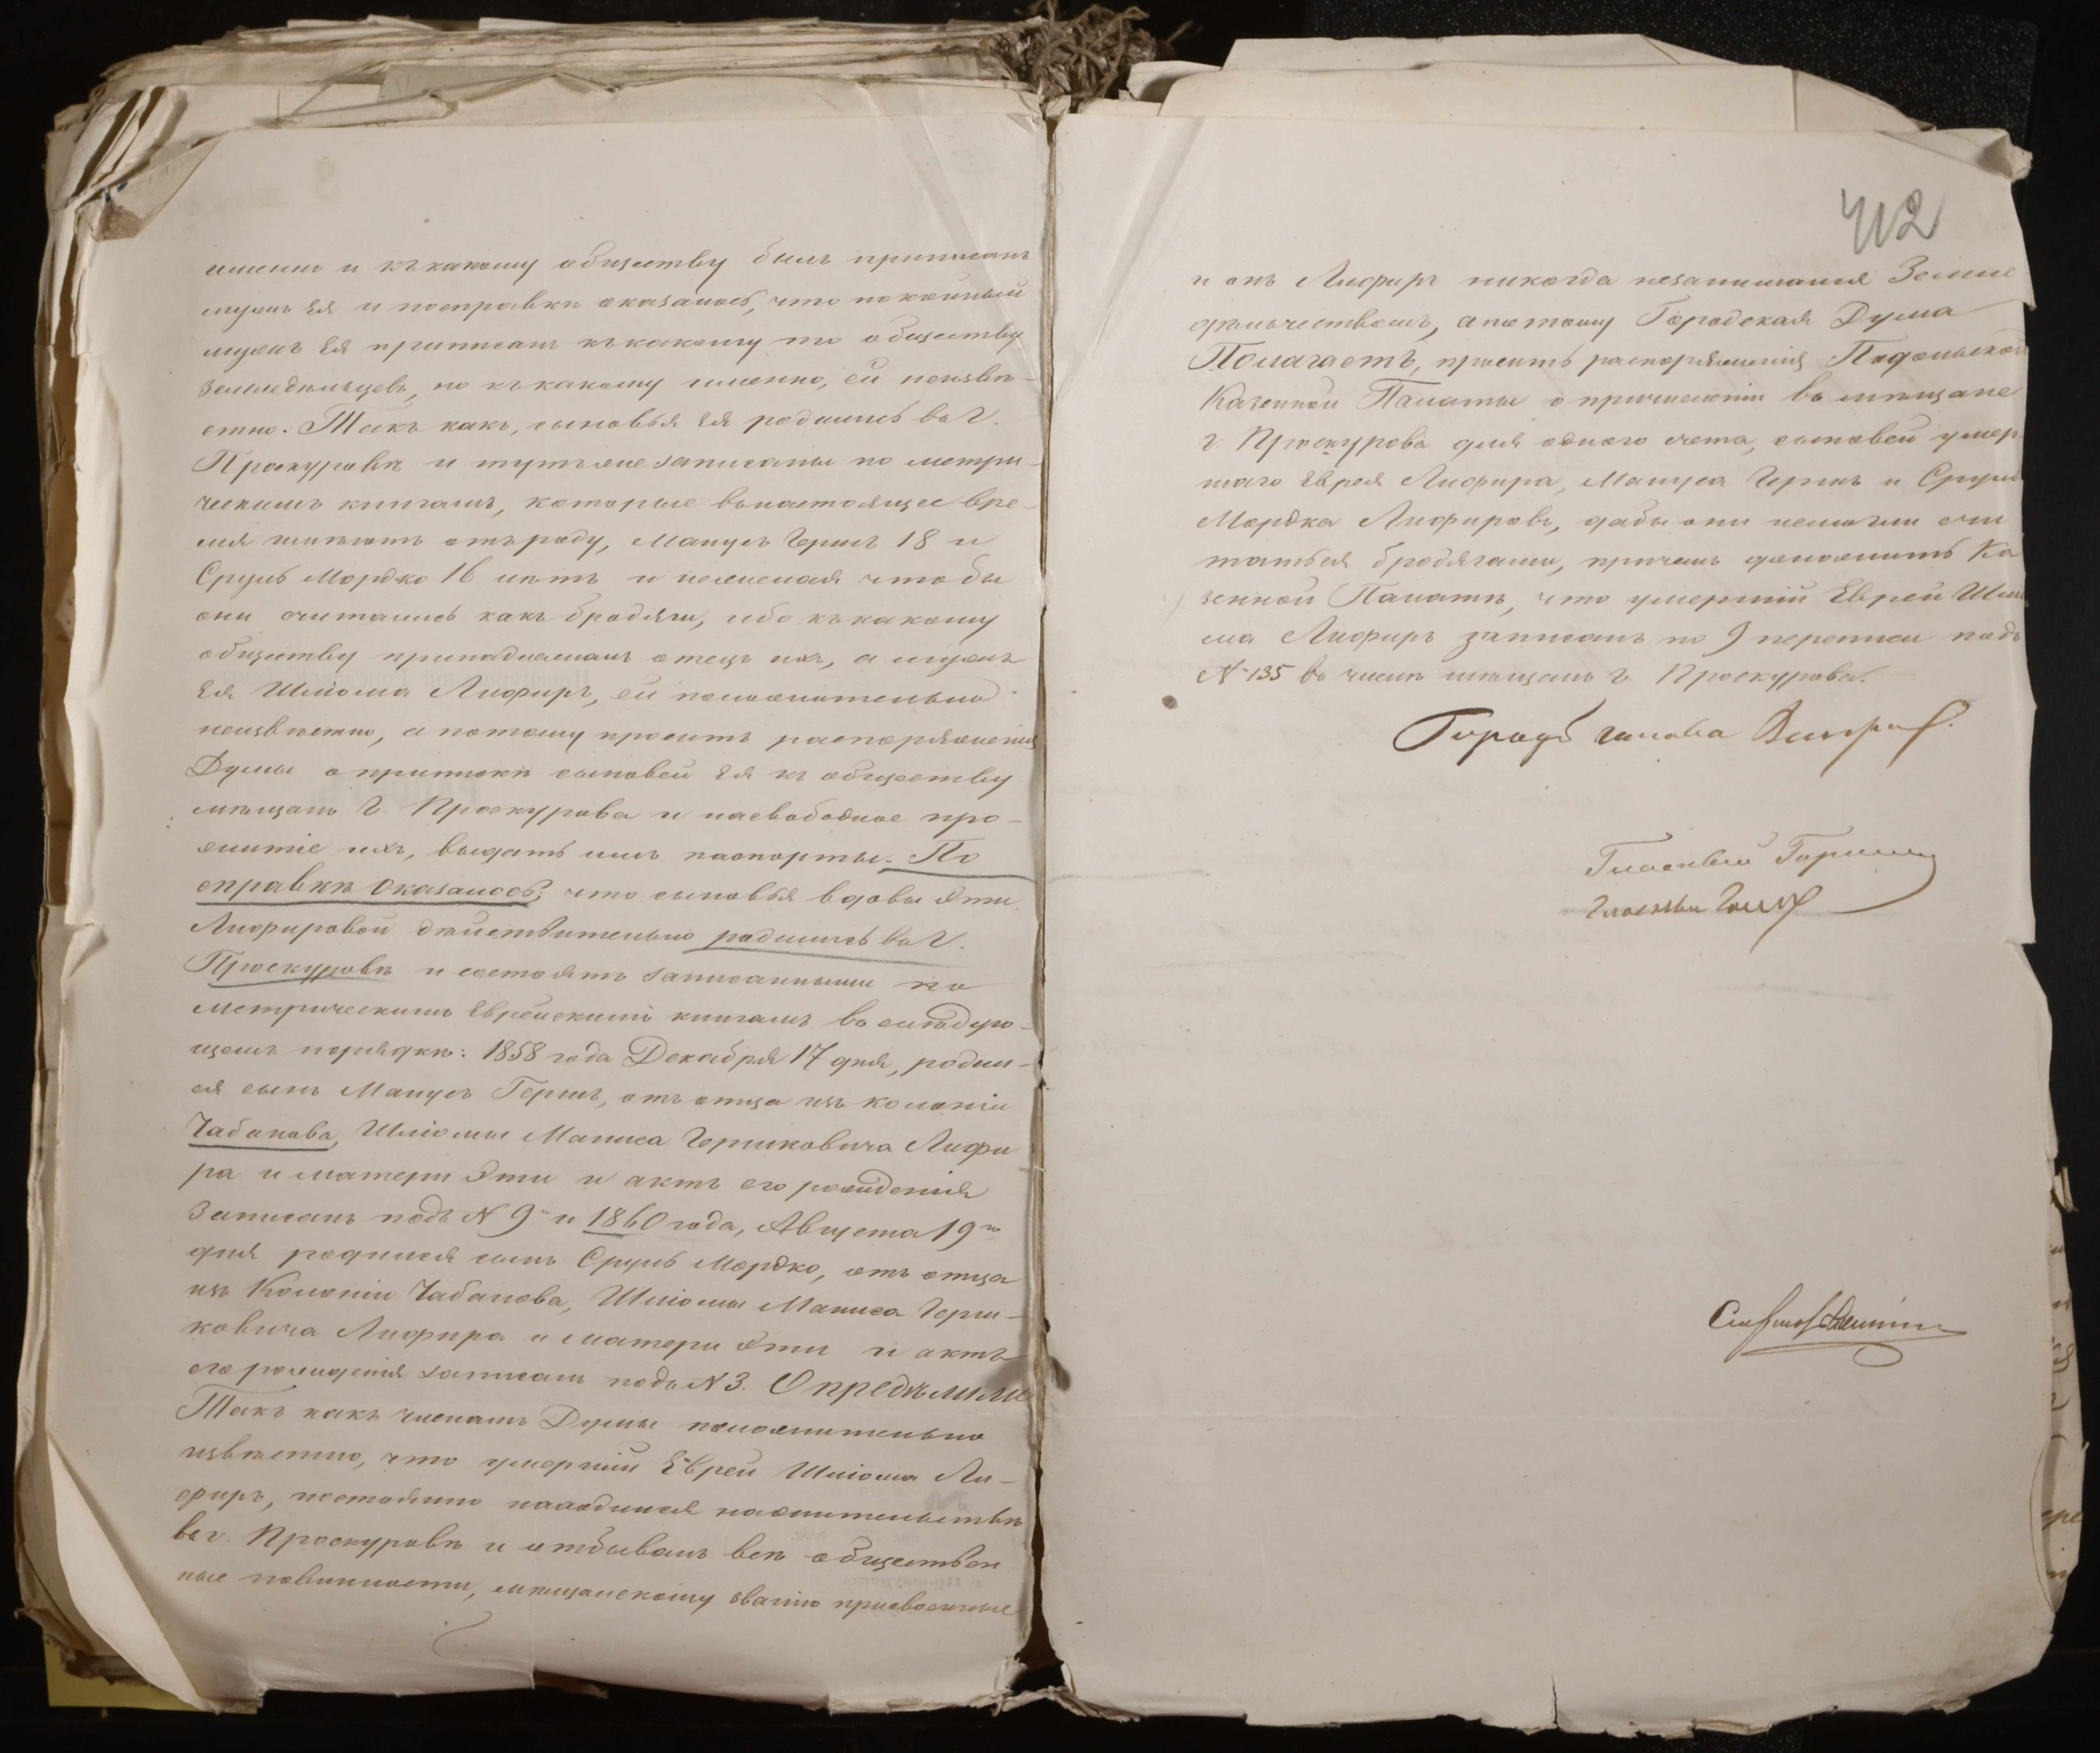 именно и къ какому обществу былъ приписанъ
мужъ ея и посправкѣ оказалось, что покойный
мужъ ея приписанъ къ какому то обществу
земледѣльцевъ, но къ какому именно, ей неизвѣ-
стно. Такъ какъ, сыновья ея родились въ г.
Проскуровѣ и тутъже записаны по метри-
ческимъ книгамъ, которые внастоящее вре-
мя имѣютъ отъ роду, Манусъ Гершъ 18 и
Сруль Мордко 16 лѣтъ и нежелая чтобы
они считались какъ бродяги, ибо къ какому
обществу принадлежалъ отецъ ихъ, а мужъ
ея Шліома Лифиръ, ей положительно
неизвѣстно, а потому проситъ распоряженія
Думы о припискѣ сыновей ея къ обществу
мѣщанъ г. Проскурова и насвободное про-
житіе ихъ, выдать имъ паспорты. По
справкѣ оказалось; что сыновья вдовы Эти
Лифировой дѣйствительно родились въ г.
Проскуровѣ и состоятъ записанными по
метрическимъ Еврейскимъ книгамъ въ слѣдую-
щемъ порядкѣ: 1858 года Декабря 17 дня, родил-
ся сынъ Манусъ Гершъ, отъ отца изъ колоніи
Чабанова, Шліомы Маниса Гершковича Лифи
ра и матери Эти и актъ его рожденія
записанъ подъ № 9 и 1860 года, Августа 19го
дня родился сынъ Сруль Мордко, отъ отца
изъ Колоніи Чабанова, Шліомы Маниса Герш-
ковича Лифира и матери Эти и актъ
его рожденія записанъ подъ № 3. Опредѣлили
Такъ какъ членамъ Думы положительно
извѣстно, что умершій Еврей Шліома Ли-
фиръ, постоянно находился нажительствѣ
въ г. Проскуровѣ и отбывалъ всѣ обществен
ные повинности, мѣщанскому званію присвоенные
412
и онъ Лифиръ никогда незанимался Земле
дѣльчествомъ, апотому Городская Дума
Полагаетъ, просить распоряженія Подольской
Казенной Палаты о причисленіи въ мѣщане
г. Проскурова для одного счета, сыновей умер
шаго Еврея Лифира, Мануса Герша и Сруля
Мордка Лифировъ, дабы они немогли счи
таться бродягами, причемъ доложить Ка
зенной Палатѣ, что умершій Еврей Шлі
ма Лифиръ записанъ по 9 переписи подъ
№ 135 въ числѣ мѣщанъ г. Проскурова.
Городс голова
Гласный
Гласный